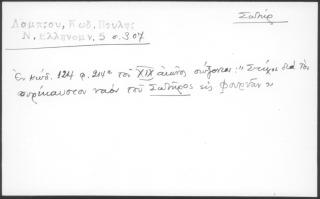 Σωτήρ
Λαμπρου, Κωδ. Βουλής
Ν. Ελληνομν, 5 σ. 307
Ἐν κώδ. 124 φ. 214α τοῦ XIX αἰῶνος σώζονται: "Στίχοι διὰ τὸν
πυρίκαυστον ναὸν τοῦ Σωτῆρος εἰς Φουρνᾶν"